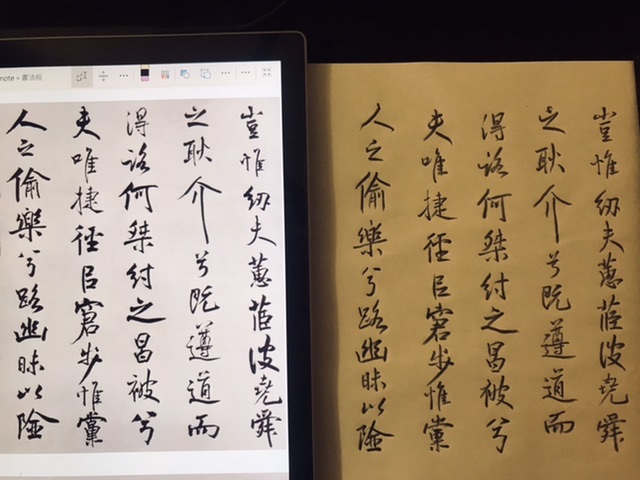 note »
豈惟紉夫蕙茝彼堯舜
之耿介兮既遵道而
得路何桀紂之昌被兮
夫唯捷徑㠯窘步惟黨
人之偷樂兮路幽昧以險
豈惟紉夫蕙茝彼堯舜
之耿介兮既遵道而
得路何桀紂之昌被兮
夫唯捷徑㠯窘步惟黨
人之偷樂兮路幽昧以險